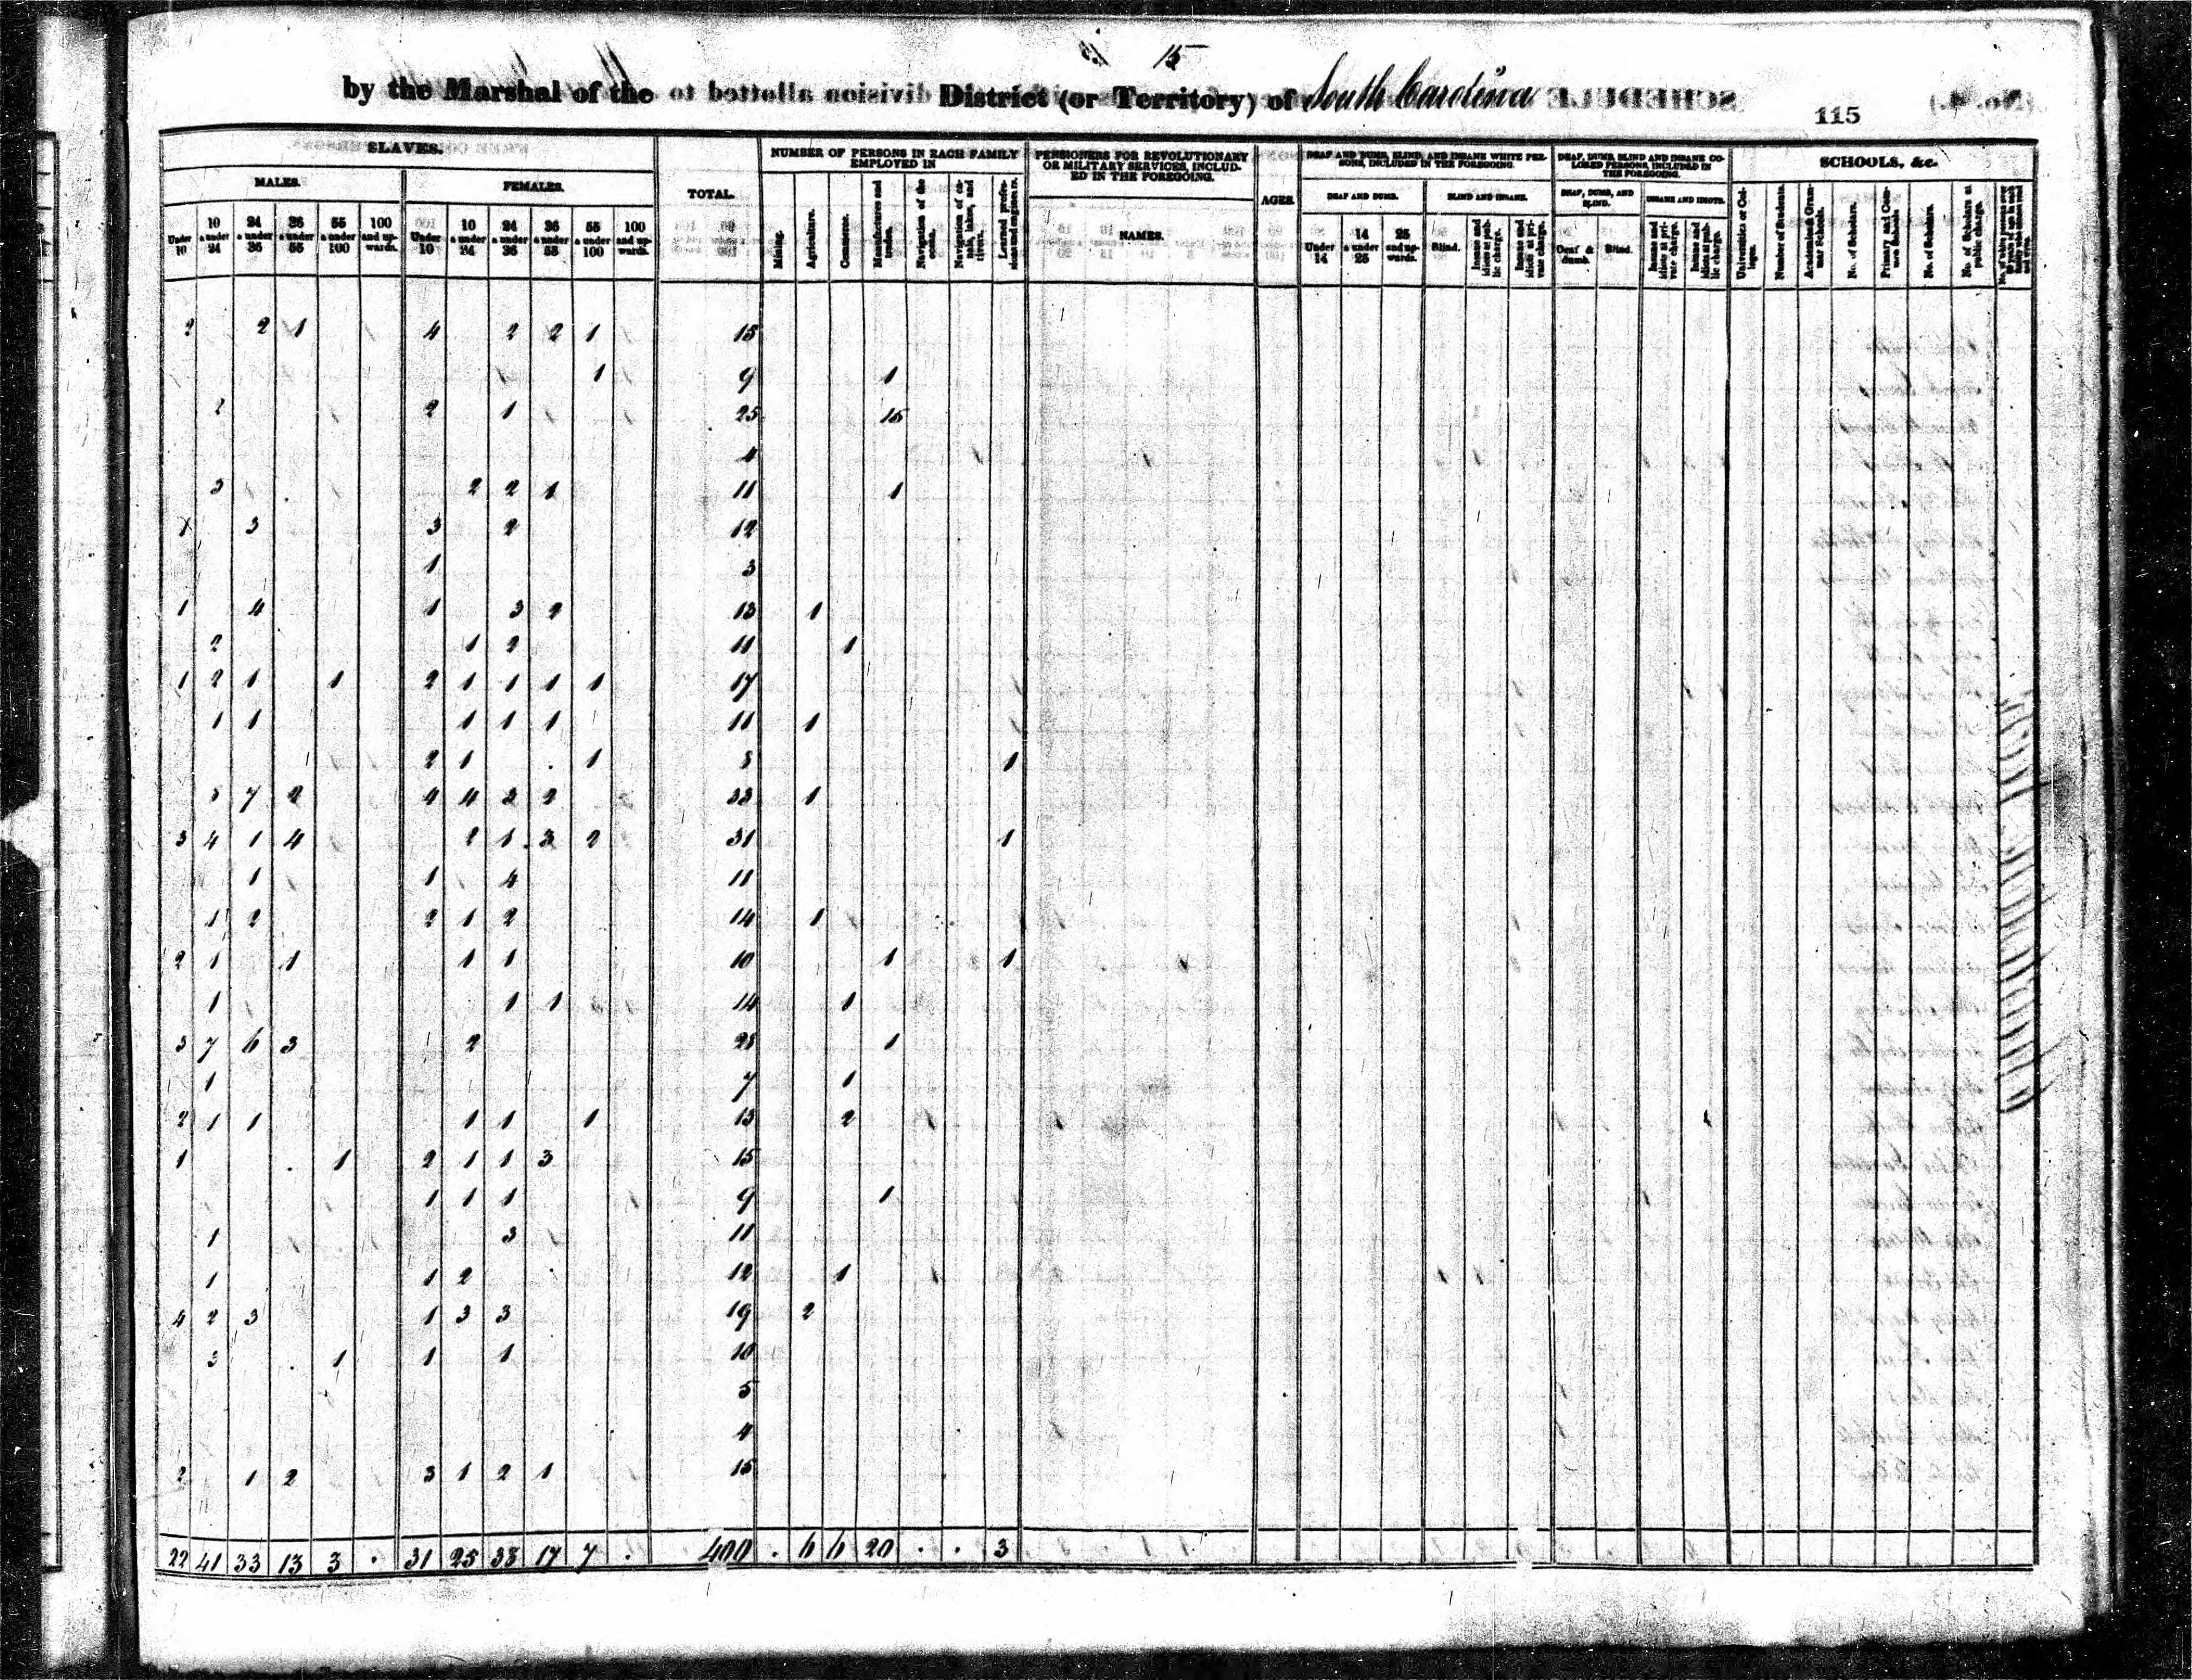 15
by the Marshal of the District (or Territory) of South Carolina
115
SLAVES.
MALES. FEMALES.
Under 10 10 & under 24 24 & under 36 36 & under 55 55 & under 100 100 and upwards. Under 10 10 & under 24 24 & under 36 36 & under 55 55 & under 100 100 and upwards.
TOTAL.
NUMBER OF PERSONS IN EACH FAMILY EMPLOYED IN
Mining. Agriculture. Commerce. Manufactures and trades. Navigation of the ocean. Navigation of canals, lakes, and rivers. Learned professions and engineers.
PENSIONERS FOR REVOLUTIONARY OR MILITARY SERVICES, INCLUDED IN THE FOREGOING.
NAMES.
AGES.
DEAF AND DUMB, BLIND, AND INSANE WHITE PERSONS, INCLUDED IN THE FOREGOING.
DEAF AND DUMB. BLIND AND INSANE.
Under 14 14 & under 25 25 and upwards. Blind. Insane and idiots at public charge. Insane and idiots at private charge.
DEAF, DUMB, BLIND AND INSANE COLORED PERSONS, INCLUDED IN THE FOREGOING.
DEAF, DUMB, AND BLIND. INSANE AND IDIOTS.
Deaf & dumb. Blind. Insane and idiots at private charge. Insane and idiots at public charge.
SCHOOLS, &c.
Universities or Colleges. Number of Students. Academies & Grammar Schools. No. of Scholars. Primary and Common Schools. No. of Scholars. No. of Scholars at public charge.
2 2 1 4 2 2 1 15
1 9 1
2 2 1 25 15
4
3 2 2 1 11 1
3 3 2 12
1 3
1 4 1 3 2 13 1
2 1 2 11 1
1 2 1 1 2 1 1 1 1 17
1 1 1 1 1 11 1
2 1 1 8 1
7 2 4 4 3 2 33 1
3 4 1 4 2 1 3 2 31 1
1 1 4 11
1 2 2 1 2 14 1
2 1 1 1 1 10 1 1
1 1 1 14 1
3 7 6 3 2 28 1
1 7 1
2 1 1 1 1 1 13 2
1 1 2 1 1 3 15
1 1 1 9 1
1 3 11
1 1 2 12 1
4 2 3 1 3 3 19 2
3 1 1 1 10
5
4
2 1 2 3 1 2 1 15
22 41 33 13 3 . 31 25 38 17 7 . 400 . 6 6 20 . . 3